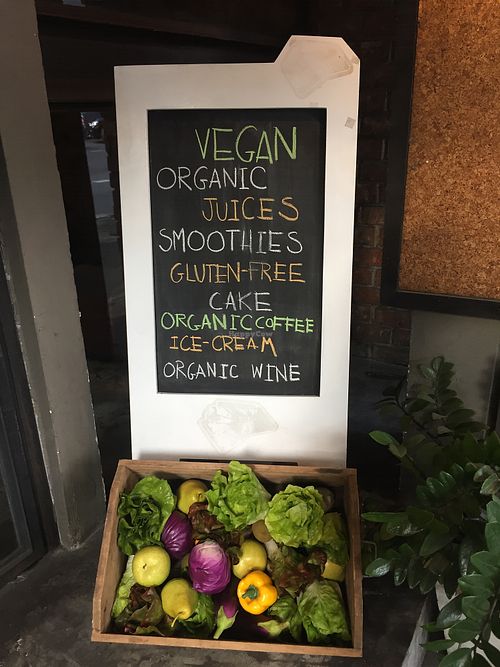 VEGAN
ORGANIC
JUICES
SMOOTHIES
GLUTEN-FREE
CAKE
ORGANIC COFFEE
ICE-CREAM
ORGANIC WINE
HappyCow